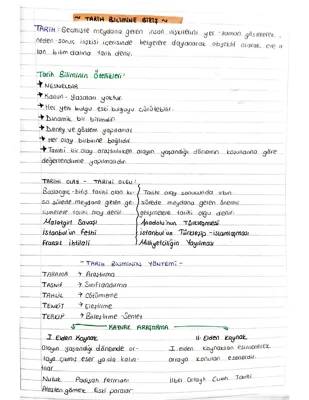 ~ TARİH BİLİMİNE GİRİŞ ~
TARİH: Geçmişte meydana gelen insan ilişkilerini yer-zaman göstererek,
neden sonuç ilişkisi içerisinde belgelere dayanarak objektif olarak
bilim dalına tarih denir.
Tarih Biliminin Özellikleri:
→ NESNELDİR
→ Kanun - yasaları yoktur.
→ Her yeni bulgu eski bulguyu çürütebilir.
→ Dinamik bir bilimdir.
→ Deney ve gözlem yapılamaz
→ Her olay birbirine bağlıdır.
→ Tarihi bir olay araştırılırken olayın yaşandığı dönemin koşullarına göre
değerlendirme yapılmalıdır.
TARİHİ OLAY - TARİHİ OLGU:
Başlangıç - bitiş tarihi olan
sürede meydana gelen
tarihi olay denir.
Malazgirt Savaşı
İstanbul'un Fethi
Fransız İhtilali
Tarihi olay sonucunda
sürede meydana gelen
tarihi olgu denir.
Anadolu'nun Türkleşmesi
İstanbul'un Türkleşip - İslamlaşması
Milliyetçiliğin Yayılması
- TARİH BİLİMİNİN YÖNTEMİ -
TARAMA → Araştırma
TASNİF → Sınıflandırma
TAHLİL → Çözümleme
TENKİT → Eleştirme
TERKİP → Birleştirme - Sentez
KAYNAK ARAŞTIRMA
I. Elden Kaynak
Olayın yaşandığı dönemde
ortaya çıkmış eser ya da
Nutuk Padişah fermanı
Eski paralar
II. Elden Kaynak
I. elden kaynaktan
ortaya konulan eserlerdir.
İlber Ortaylı Cumh. Tarihi